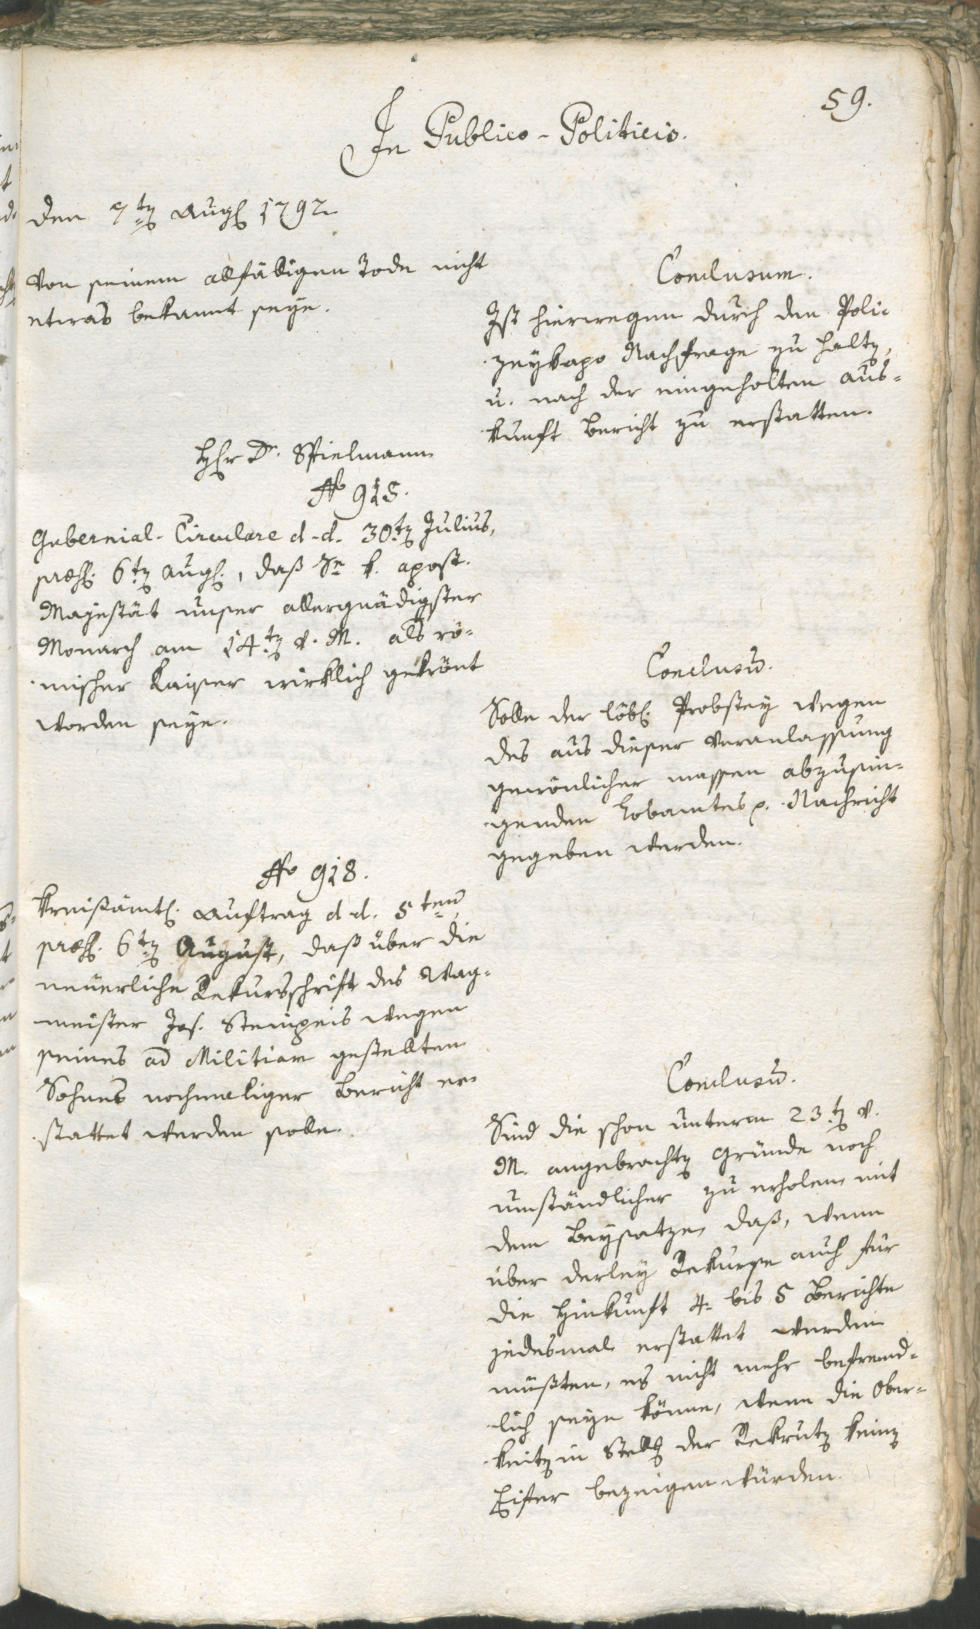 59.
In Publico-Politicis.
den 7tn Augl 1792
von seinem allfälligen Tode nicht
etwas bekannt seye.
Conclusum.
Ist hierwegen durch den Poli-
zeykapo Nachfrage zu haltn,
u. nach der eingeholten aus-
kunft bericht zu erstatten.
Hhr Dr. Spielmann
No 915.
Gubernial-Circulare d-d. 30tn Julius,
præs. 6tn Augl., daß Sr k. apost.
Majestät unser allergnädigster
Monarch am 14tn v. M. als rö-
mischer Kaiser wirklich gekrönt
worden seye.
Conclusum.
Solle der löbl. Probstey wegen
des aus dieser veranlassung
gewönlicher massen abzusin-
genden Hobamtes p. Nachricht
gegeben werden.
No 918.
Kreisämtl. Auftrag d d. 5ten
præs. 6tn August, daß über die
neuerliche Rekursschrift des Wag-
meister Jos. Steinpeis wegen
seines ad Militiam gestellten
Sohnes nochmaliger bericht er-
stattet werden solle.
Conclusum.
Sind die schon unterm 23tn v.
M. angebrachtn Gründe noch
umständlicher zu erholen mit
dem beysatze, daß, wenn
über derley Rekurse auch für
die Hinkunft 4- bis 5 Berichte
jedesmal erstattet werden
müßten, es nicht mehr befremd-
lich seye könne, wenn die Ober-
keitn in Stellg der Rekrutn keinn
Eifer bezeigen würden.